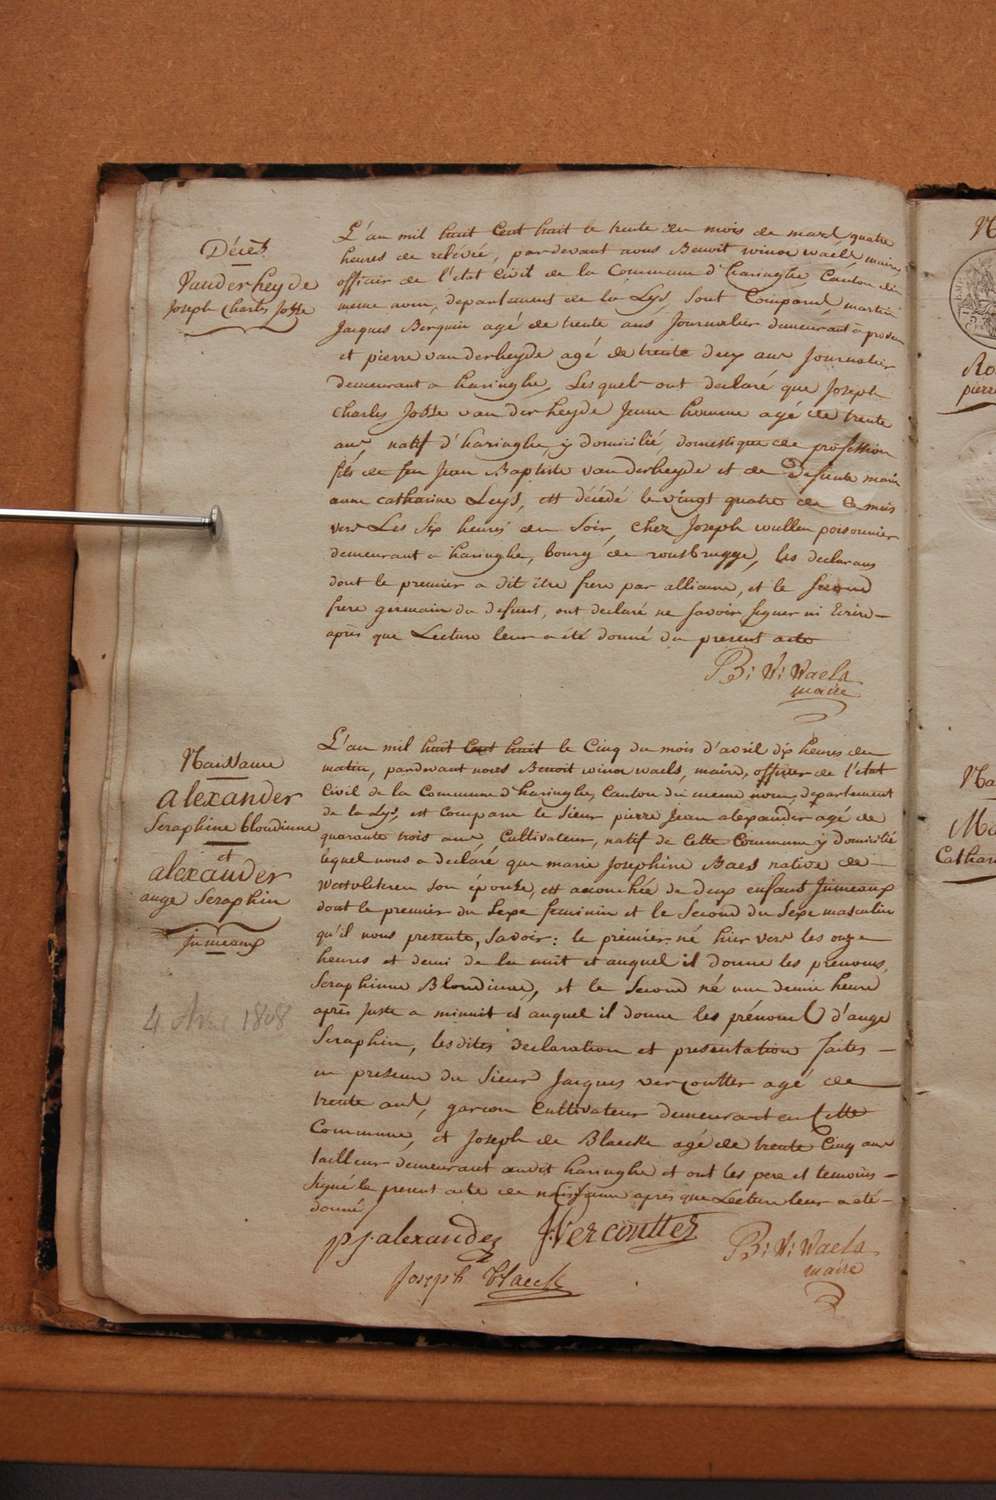 Décès
Vanderheyde
Joseph Charles Josse
L'an mil huit Cent huit le trente du mois de mars quatre
heures de relévée, pardevant nous Benoit winoc waels maire
officier de l'etat Civil de la Commune d'haringhe, Canton du
meme nom, departement de la Lys, sont Comparu, martin
Jacques Berquin agé de trente ans Journalier demeurant à
et pierre vanderheyde agé de trente deux ans Journalier
demeurant a haringhe, Lesquels ont declaré que Joseph
Charles Josse vanderheyde Jeune homme agé de trente
ans, natif d'haringhe, y domicilié, domestique de profession
fils de feu Jean Baptiste vanderheyde et de defunte marie
anne catharine Leys, est décédé le vingt quatre de ce mois
vers Les Six heures du Soir, chez Joseph wullen poisonnier
demeurant a haringhe, bourg de rousbrugge, les declarans
dont le premier a dit être frere par alliance, et le second
frere germain du defunt, ont declaré ne savoir signer ni Ecrire
après que Lecture leur a été donné du present acte
B: W: Waels
maire
Naissance
alexander
Seraphine blondinne
et
alexander
ange Seraphin
jumeaux
4 Avr 1808
L'an mil huit Cent huit le Cinq du mois d'avril dix heures du
matin, pardevant nous Benoit winoc waels, maire, officier de l'état
Civil de la Commune d'haringhe, Canton du meme nom, departement
de la Lys, est Comparu le Sieur pierre Jean alexander agé de
quarante trois ans, Cultivateur, natif de Cette Commune y domicilié
lequel nous a declaré que marie Josephine Baes native de
westvleteren son épouse, est accouchée de deux enfans Jumeaux
dont le premier du Sexe feminin et le Second du Sexe masculin
qu'il nous presente, Savoir: le premier né hier vers les onze
heures et demi de la nuit et auquel il donne les prenoms,
Seraphinne Blondinne, et le Second né une demie heure
après Juste a minuit et auquel il donne les prénoms d'ange
Seraphin, lesdites declaration et presentation faites
en presence du Sieurs Jacques vercoutter agé de
trente ans, garcon Cultivateur demeurant en Cette
Commune, et Joseph de Blaecke agé de trente Cinq ans
tailleur demeurant audit haringhe et ont les pere et temoins
Signé le present acte de naissance après que Lecture leur a été
donné
p j. alexander
J. Vercoutter
B: W: Waels
maire
Joseph Blaeck